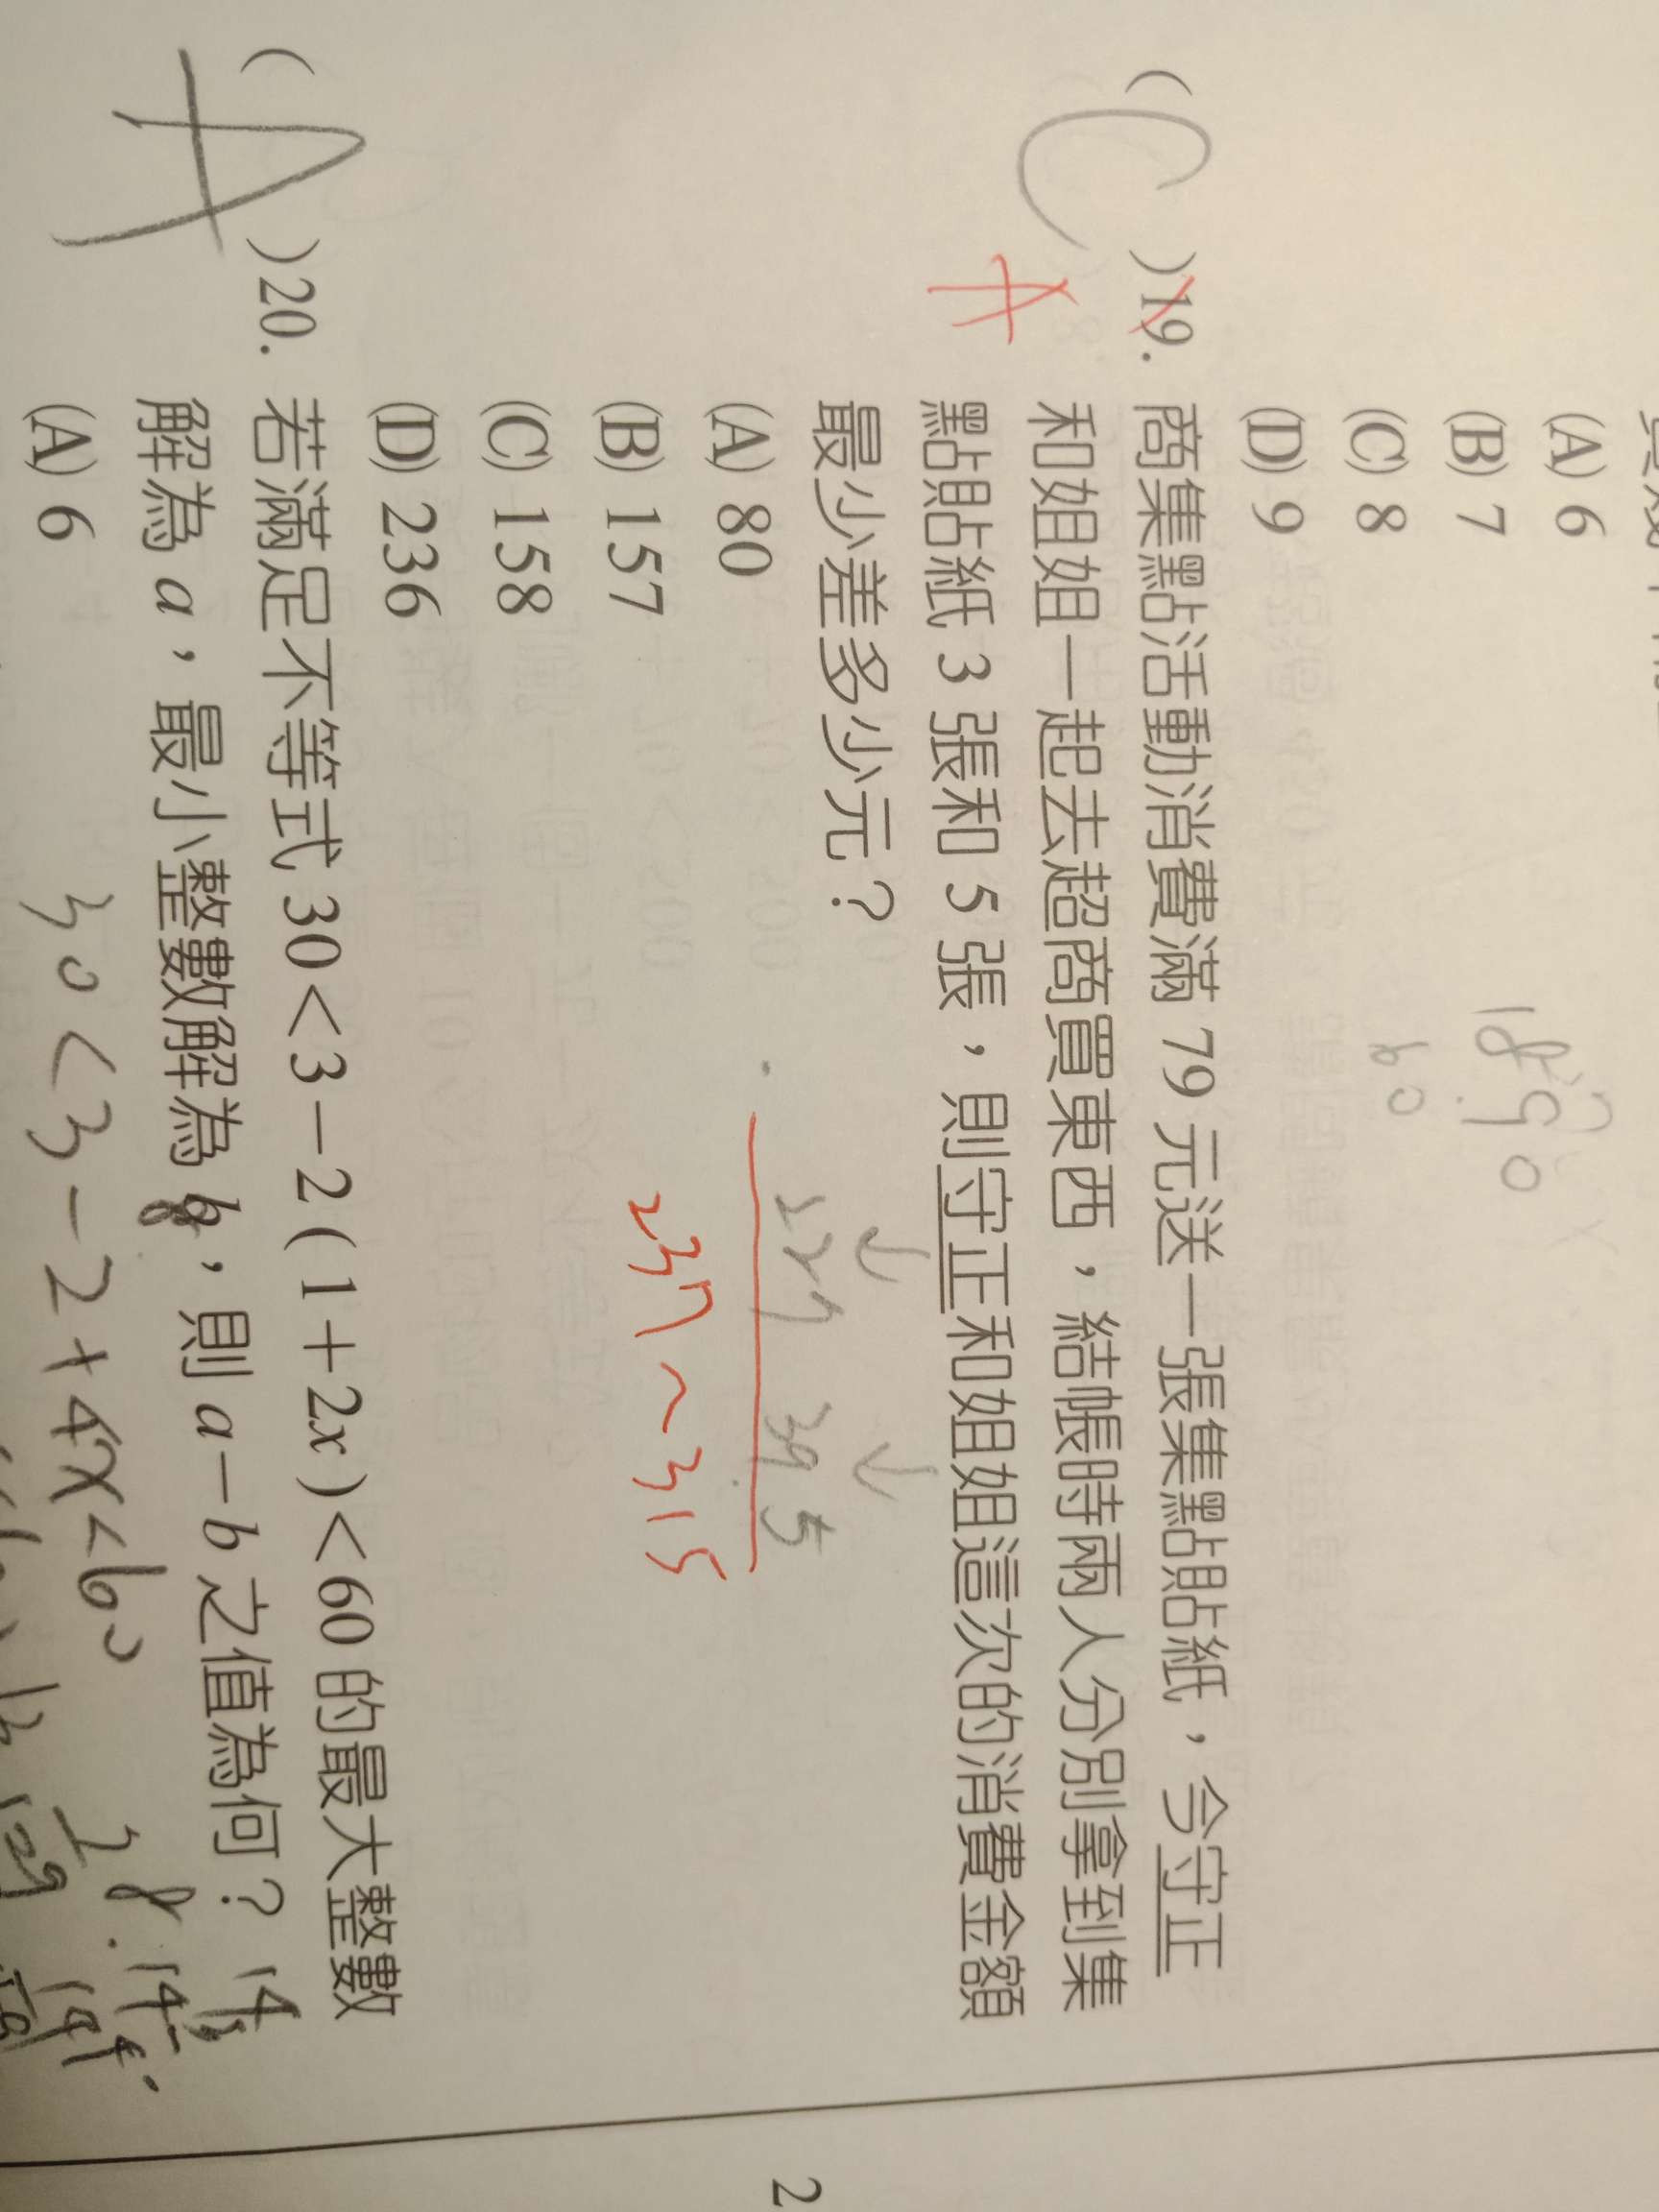 (A) 6
(B) 7
(C) 8
(D) 9
60
( C )19. 商集點活動消費滿 79 元送一張集點貼紙，今守正
A
和姐姐一起去超商買東西，結帳時兩人分別拿到集
點貼紙 3 張和 5 張，則守正和姐姐這次的消費金額
最少差多少元？
(A) 80
(B) 157
(C) 158
(D) 236
↓ ↓
395
237~315
( A )20. 若滿足不等式 30<3－2(1+2x)<60 的最大整數
解為 a，最小整數解為 b，則 a－b 之值為何？
(A) 6
30<3-2+4x<60
2